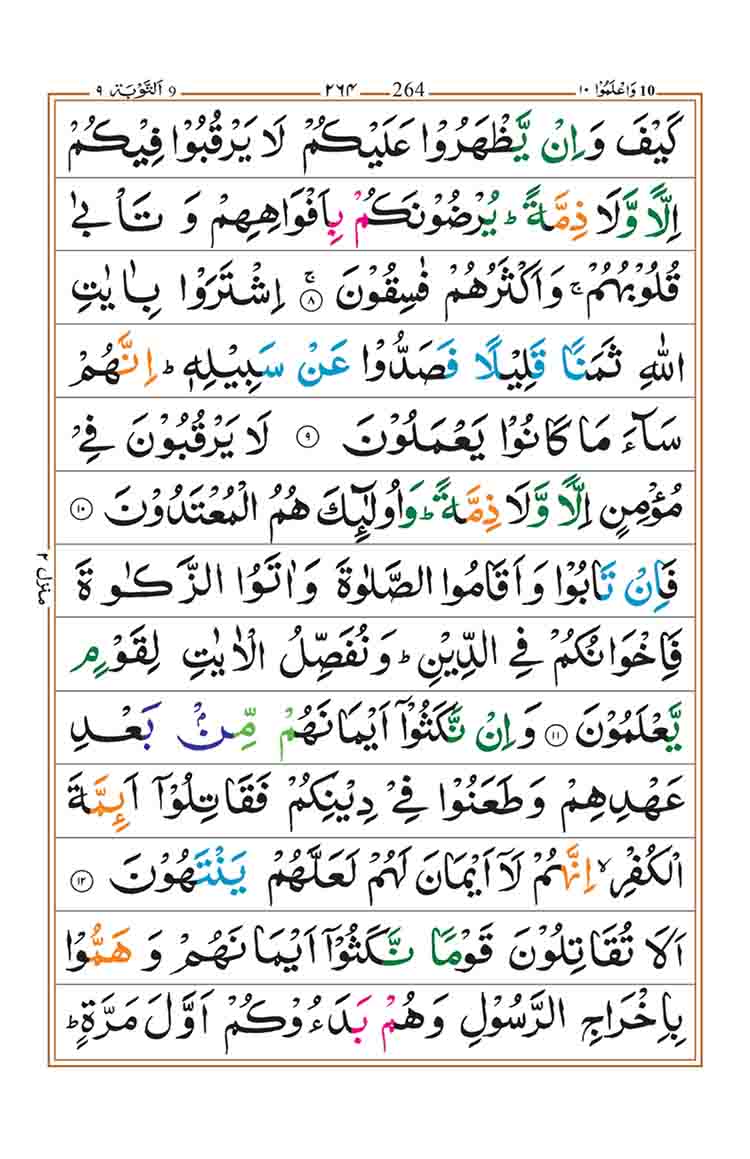 10 وَاعْلَمُوْا ١٠ 264 ٢٦٤ 9 اَلتَّوْبَة ٩
كَيْفَ وَاِنْ يَّظْهَرُوْا عَلَيْكُمْ لَا يَرْقُبُوْا فِيْكُمْ
اِلًّا وَّلَا ذِمَّةً ؕ يُرْضُوْنَكُمْ بِاَفْوَاهِهِمْ وَ تَاْبٰى
قُلُوْبُهُمْ ۚ وَاَكْثَرُهُمْ فٰسِقُوْنَ ۚ ۸ اِشْتَرَوْا بِاٰيٰتِ
اللّٰهِ ثَمَنًا قَلِيْلًا فَصَدُّوْا عَنْ سَبِيْلِهٖ ؕ اِنَّهُمْ
سَآءَ مَا كَانُوْا يَعْمَلُوْنَ ۹ لَا يَرْقُبُوْنَ فِيْ
مُؤْمِنٍ اِلًّا وَّلَا ذِمَّةً ؕ وَاُولٰٓئِكَ هُمُ الْمُعْتَدُوْنَ ۱۰
فَاِنْ تَابُوْا وَاَقَامُوا الصَّلٰوةَ وَاٰتَوُا الزَّكٰوةَ
فَاِخْوَانُكُمْ فِي الدِّيْنِ ؕ وَنُفَصِّلُ الْاٰيٰتِ لِقَوْمٍ
يَّعْلَمُوْنَ ۱۱ وَاِنْ نَّكَثُوْٓا اَيْمَانَهُمْ مِّنْۢ بَعْدِ
عَهْدِهِمْ وَطَعَنُوْا فِيْ دِيْنِكُمْ فَقَاتِلُوْٓا اَئِمَّةَ
الْكُفْرِ ۙ اِنَّهُمْ لَآ اَيْمَانَ لَهُمْ لَعَلَّهُمْ يَنْتَهُوْنَ ۱۲
اَلَا تُقَاتِلُوْنَ قَوْمًا نَّكَثُوْٓا اَيْمَانَهُمْ وَ هَمُّوْا
بِاِخْرَاجِ الرَّسُوْلِ وَهُمْ بَدَءُوْكُمْ اَوَّلَ مَرَّةٍ ؕ
منزل ۲